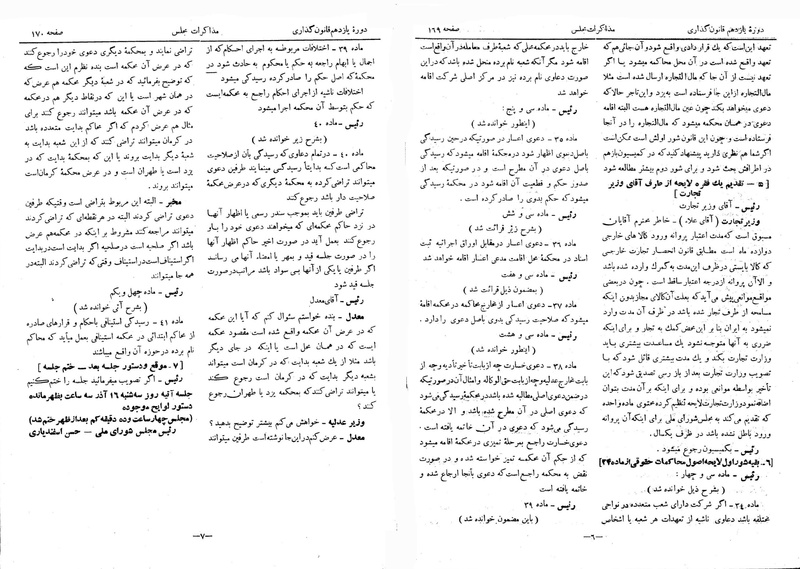 دورهٔ یازدهم قانون گذاری
مذاکرات مجلس
صفحه ۱۶۹
تعهد این است که یك قراردادی واقع شود و آن جائی هم که
تعهد واقع شده است در آن محل محاکمه میشود یا اگر
تعهد نیست از آن جا که مال‌التجاره ارسال شده است مثلا
مال‌التجاره از این جا فرستاده است به یزد و این تاجر حالا که
دعوی میخواهد بکند چون عین مال‌التجاره هست البته اقامه
در همان محکمه میشود که مال‌التجاره را در آنجا
فرستاده است و چون این قانون شور اولش است ممکن است
اگر شما هم نظری دارید پیشنهاد کنید که در کمیسیون بازهم
در اطرافش بحث شود و برای شور دوم بیشتر مطالعه شود
[ ۵ – تقدیم یك فقره لایحه از طرف آقای وزیر
تجارت ]
رئیس – آقای وزیر تجارت
وزیر تجارت ( آقای علاء ) – خاطر محترم آقایان
مسبوق است که مدت اعتبار پروانه ورود کالا های خارجی
دوازده ماه است مطابق قانون انحصار تجارت خارجی
که کالا بایستی در ظرف این مدت به گمرك وارد شده باشد
والا آن پروانه از درجه اعتبار ساقط است . چون در بعضی
مواقع موانعی پیش می‌آید که بعلت آن کالای مجاز بدون اینکه
مسامحه از طرف تجار شده باشد در ظرف آن مدت وارد
نمیشود به ایران بنا بر این محض کمك به تجار و برای اینکه
ضرری به آنها متوجه نشود یك مساعدت بیشتری باید
وزارت تجارت بکند و یك مدت بیشتری قائل شود که با
تصویب وزارت تجارت بعد از باز رسی تصدیق شود که این
تأخیر بواسطه موانعی بوده و برای اینکه بر آن مدت بتوان
اضافه نمود وزارت تجارت لایحه تنظیم کرده محتوی ماده واحده
که تقدیم می کند به مجلس شورای ملی برای اینکه آن پروانه
ورود باطل نشده باشد در ظرف یکسال .
رئیس – بکمیسیون رجوع میشود .
[۶– بقیه شور اول لایحه اصول محاکمات حقوقی از ماده ۳۴]
رئیس – ماده سی و چهار :
( بشرح ذیل خوانده شد )
ماده ۳۴ – اگر شرکت دارای شعب متعدده در نواحی
مختلفه باشد دعاوی ناشیه از تعهدات هر شعبه با اشخاص
خارج باید در محکمه محلی که شعبهٔ طرف معامله در آن واقع است
اقامه شود مگر آنکه شعبه نام برده منحل شده باشد که در این
صورت دعاوی نام برده نیز در مرکز اصلی شرکت اقامه
میشود .
رئیس – ماده سی و پنج :
( اینطور خوانده شد )
ماده ۳۵ – دعوی اعسار در صورتیکه در حین رسیدگی
باصل دعوی اظهار شود در محکمهٔ اقامه میشود که رسیدگی
باصل دعوی در آن مطرح است و در صورتیکه بعد از
صدور حکم و قطعیت آن اقامه شود در محکمهٔ رسیدگی
میشود که حکم بدوی را صادر کرده است .
رئیس – ماده سی و شش
( بشرح زیر قرائت شد )
ماده ۳۶ – دعوی اعسار در مقابل اوراق اجرائیه ثبت
اسناد در محکمهٔ محل اقامت مدعی اعسار اقامه خواهد شد
رئیس – ماده سی و هفت
( بمضمون ذیل قرائت شد )
ماده ۳۷– دعوی اعسار از مخارج محاکمه در محکمهٔ اقامهٔ
میشود که صلاحیت رسیدگی بدوی باصل دعوی را دارد .
رئیس – ماده سی و هشت
( اینطور خوانده شد )
ماده ۳۸ – دعوی خسارت چه از بابت تأخیر تأدیه وجه از
بابت مخارج عدلیه وچه از بابت حق الوکاله و امثال آن در صورتیکه
در ضمن دعوی اصلی مطالبه شده باشد در محکمهٔ رسیدگی میشود
که دعوی اصلی در آن مطرح شده باشد و الا در محکمهٔ
رسیدگی می شود که دعوی در آن خاتمه یافته است .
دعوی خسارت راجع بمرحلهٔ تمیزی در محکمهٔ اقامه میشود
که از حکم آن محکمه تمیز خواسته شده و در صورت
نقض به محکمه راجع است که دعوی بآنجا ارجاع شده و
خاتمه یافته است
رئیس – ماده ۳۹
( باین مضمون خوانده شد )
–۶–
دورهٔ یازدهم قانون گذاری
مذاکرات مجلس
صفحه ۱۷۰
ماده ۳۹ – اختلافات مربوطه به اجرای احکام که از
اجمال یا ابهام راجعه به حکم یا محکوم به حادث شود در
محکمهٔ که اصل حکم را صادر کرده رسیدگی میشود
اختلافات ناشیه از اجرای احکام راجع به محکمه ایست
که حکم بتوسط آن محکمه اجرا میشود
رئیس – ماده ۴۰
( بشرح زیر خوانده شد )
ماده ۴۰ – در تمام دعاوی که رسیدگی بآن از صلاحیت
محاکمی است که بدایتاً رسیدگی مینمایند طرفین دعوی
میتوانند تراضی کرده به محکمهٔ دیگری که در عرض محکمهٔ
صلاحیت دار باشد رجوع کنند
تراضی طرفین باید بموجب سند رسمی یا اظهار آنها
در نزد حاکم محکمهٔ که میخواهند دعوی خود را باو
رجوع کنند بعمل آید در صورت اخیر حاکم اظهار آنها
را در صورت جلسه قید و بمهر یا امضاء آنها می رساند
اگر طرفین یا یکی از آنها بی سواد باشد مراتب در صورت
جلسه قید شود
رئیس – آقای معدل
معدل – بنده خواستم سئوال کنم که آیا این محکمه
که در عرض آن محکمه واقع شده است مقصود محکمه
ایست که در همان محل است یا اینکه در جای دیگر
باشد مثلا از یك شعبه بدایت که در کرمان است میتوانند
بشعبه دیگر بدایت که در کرمان است رجوع کنند
یا میتوانند تراضی کنند که بمحکمه یزد یا طهران رجوع
کنند ؟
وزیر عدلیه – خواهش می کنم بیشتر توضیح بدهید ؟
معدل – عرض کنم در این جا نوشته است طرفین میتوانند
تراضی نمایند و بمحکمه دیگری دعوی خود را رجوع کنند
که در عرض آن محکمه است بنده نظرم این است که
که توضیح بفرمائید که در شعبهٔ دیگر محکمه هم عرض که
در همان شهر است یا این که در نقاط دیگر هم در محکمه
که در عرض آن محکمه باشد میتوانند رجوع کنند برای
مثال هم عرض کردم که اگر محاکم بدایت متعدده باشد
در کرمان میتوانند تراضی کنند که از این شعبه بدایت به
شعبهٔ دیگر بدایت بروند یا این که بمحکمهٔ بدایت که در
یزد است یا طهران است و در عرض محکمهٔ کرمان است
میتوانند بروند .
مخبر – البته این مربوط بتراضی است وقتیکه طرفین
دعوی تراضی کردند البته در هر نقطه‌ای که تراضی کردند
میتوانند مراجعه کنند مشروط بر اینکه در محکمه هم عرض
باشد اگر صلحیه است در صلحیه اگر بدایت است در بدایت
اگر استیناف است در استیناف وقتی که تراضی کردند البته در
همه جا میتوانند
رئیس – ماده چهل و یکم
( بشرح آتی خوانده شد )
ماده ۴۱ – رسیدگی استینافی باحکام و قرارهای صادره
از محاکم ابتدائی در محکمه استینافی بعمل میآید که محاکم
نام برده در حوزه آن واقع میباشند
[ ۷ – موقع و دستور جلسه بعد – ختم جلسه ]
رئیس – اگر تصویب میفرمائید جلسه را ختم کنیم
جلسه آتیه روز سه‌شنبه ۱۶ آذر سه ساعت بظهر مانده
دستور لوایح موجوده
(مجلس چهار ساعت و ده دقیقه کم بعد از ظهر ختم شد)
رئیس مجلس شورای ملی – حسن اسفندیاری
–۷–